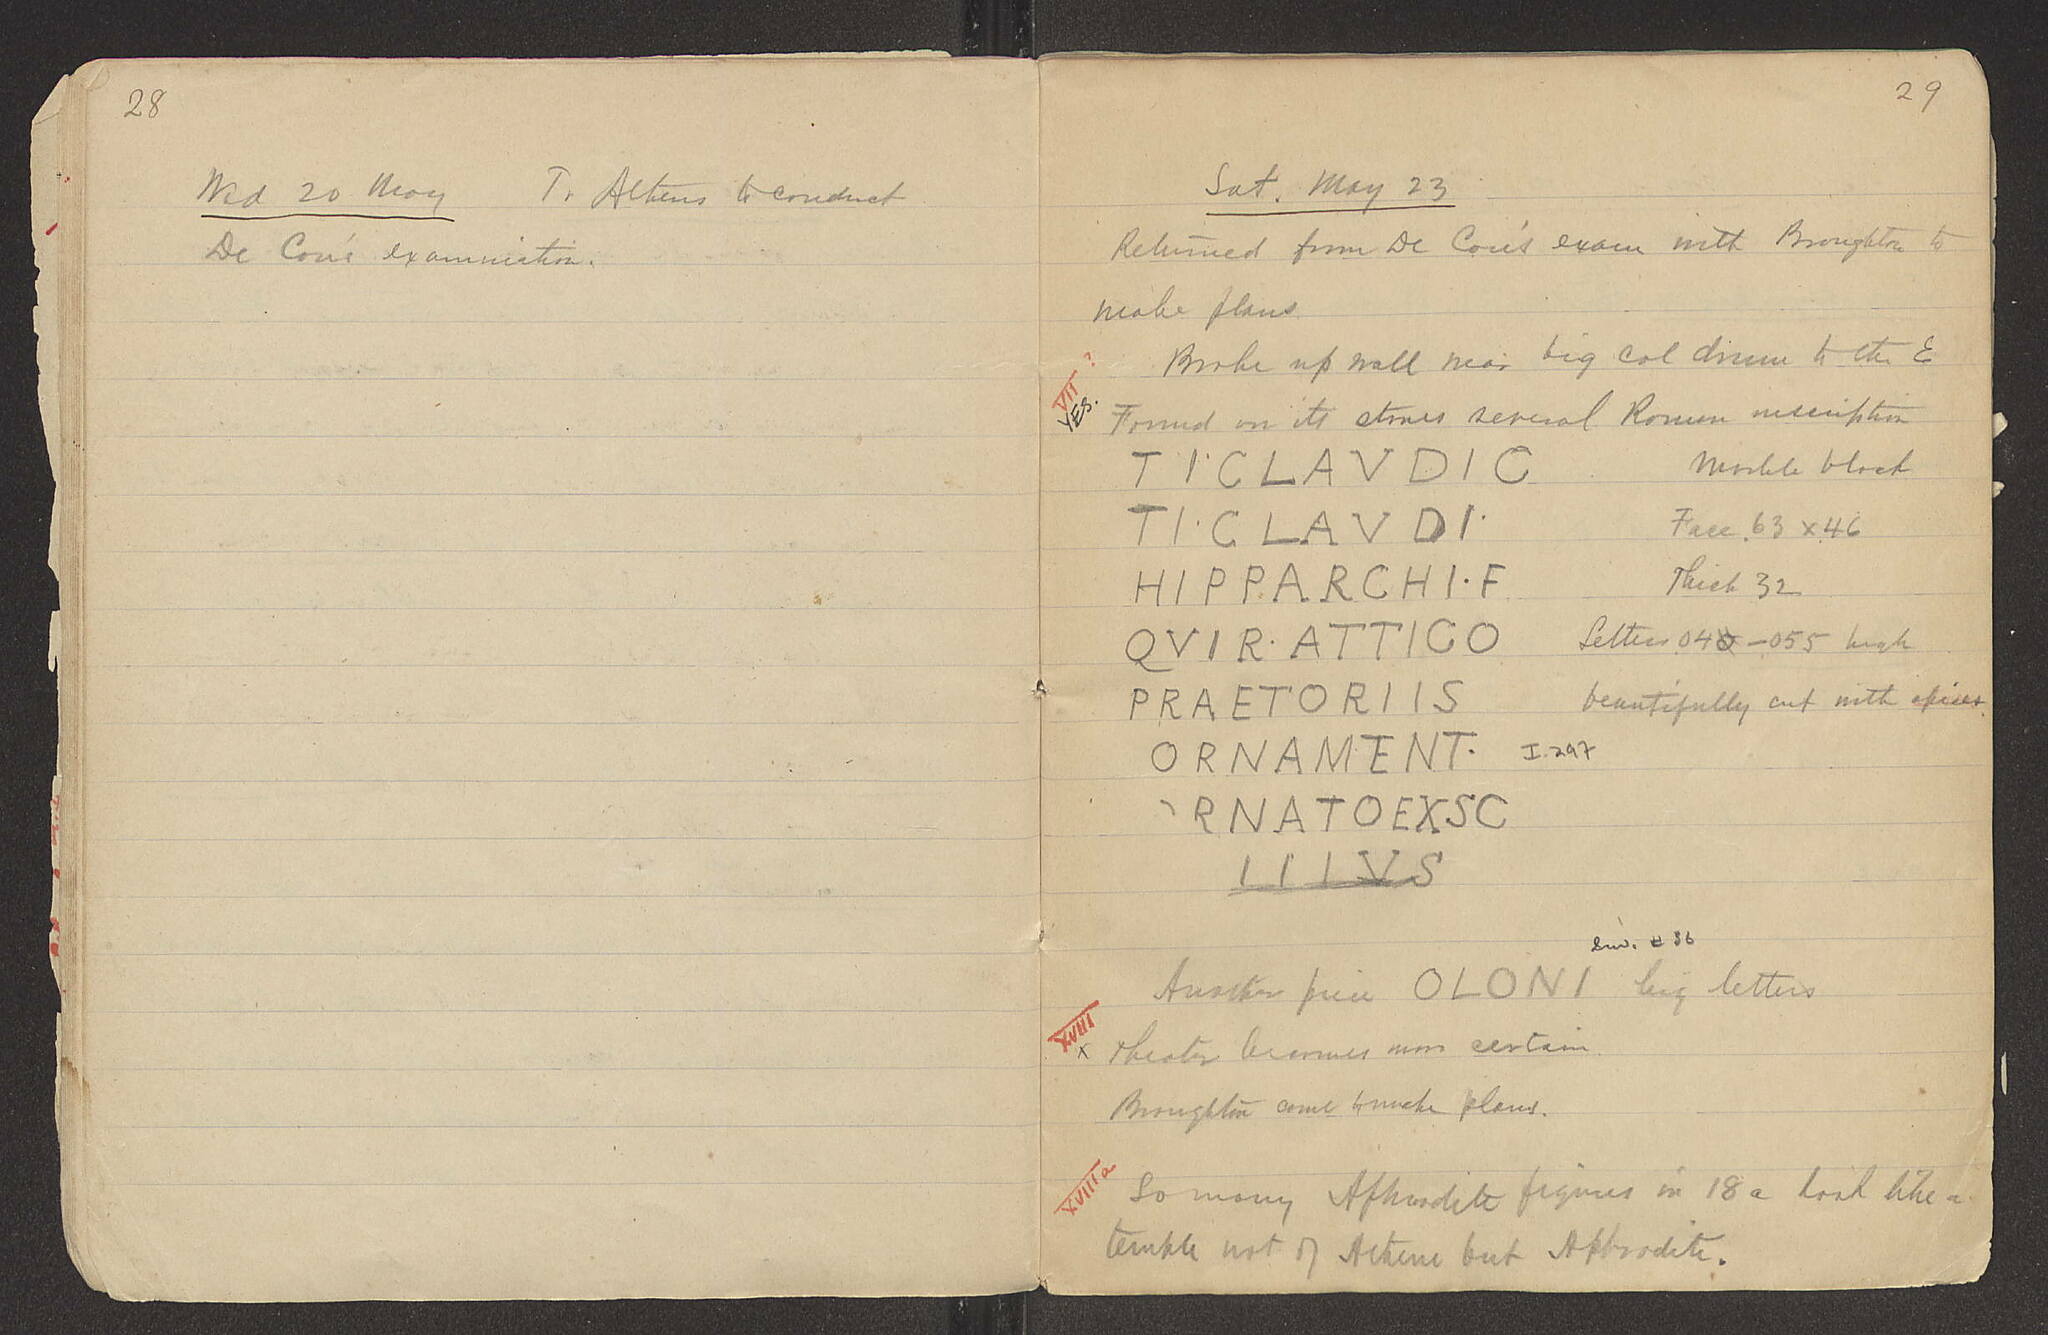 28
Wed 20 May To Athens to conduct
De Cou's examination.
29
Sat. May 23
Returned from De Cou's exam with Broughton to
make plans
VII ?
YES.
Broke up wall near big col drum to the E
Found on its stones several Roman inscription
TI·CLAVDIO Marble block
TI·CLAVDI· Face .63 x .46
HIPPARCHI·F Thick 32
QVIR·ATTICO Letters .04 -055 high
PRAETORIIS beautifully cut with apices.
ORNAMENT· I.297
RNATOEXSC
IIIVS
Inv. # 36
Another piece OLONI big letters
XVIII
x
Theater becomes more certain
Broughton came to make plans.
XVIII a
So many Aphrodite figures in 18 a look like a
temple not of Athene but Aphrodite.